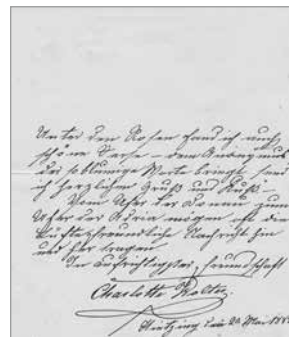 Unter den Rosen fand ich auch
schöne Verse – dem Anonymus
der so blumige Worte bringt, send
ich herzlichen Gruß und Kuß –
Vom Ufer der Donau zum
Ufer der Adria mögen oft die
Lüfte freundliche Nachricht hin
und her tragen
In aufrichtigster Freundschaft
Charlotte Wolter
Hietzing den 24 Mai 188